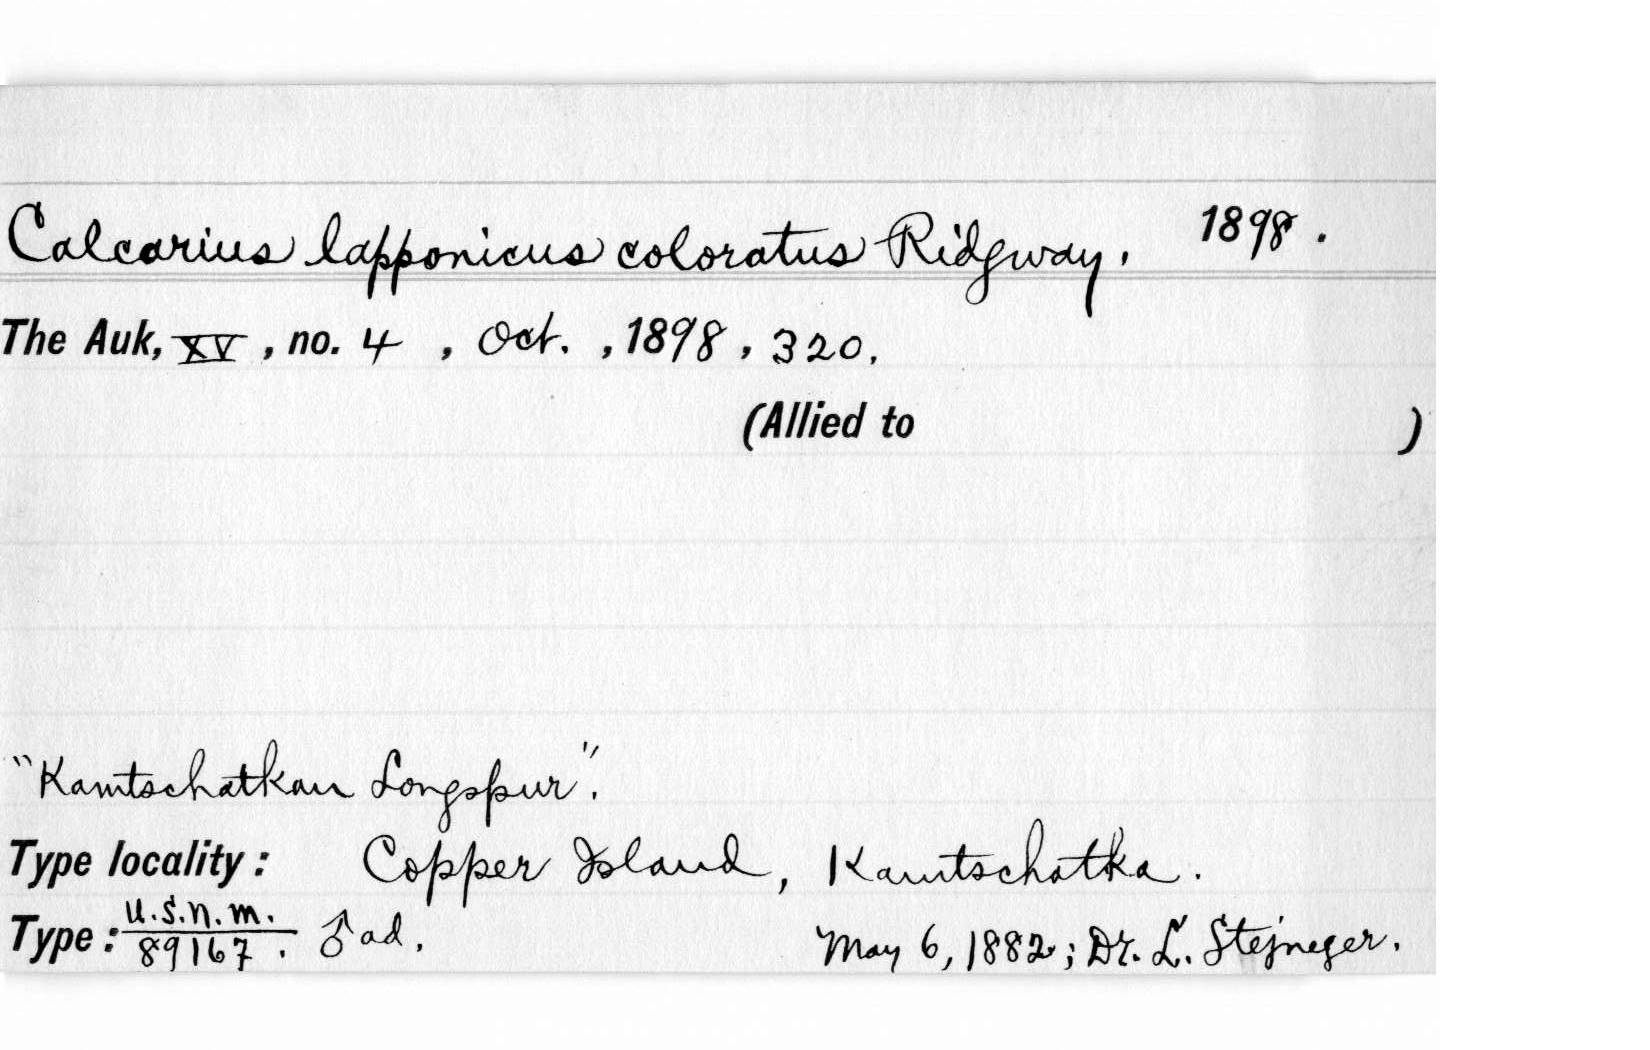 Calcarius lapponicus coloratus Ridgway. 1898.
The Auk, XV, no. 4, Oct., 1898, 320.
(Allied to )
"Kamtschatkan Longspur".
Type locality: Copper Island, Kamtschatka.
Type: U.S.N.M. 89167. ♂ ad. May 6, 1882; Dr. L. Stejneger.